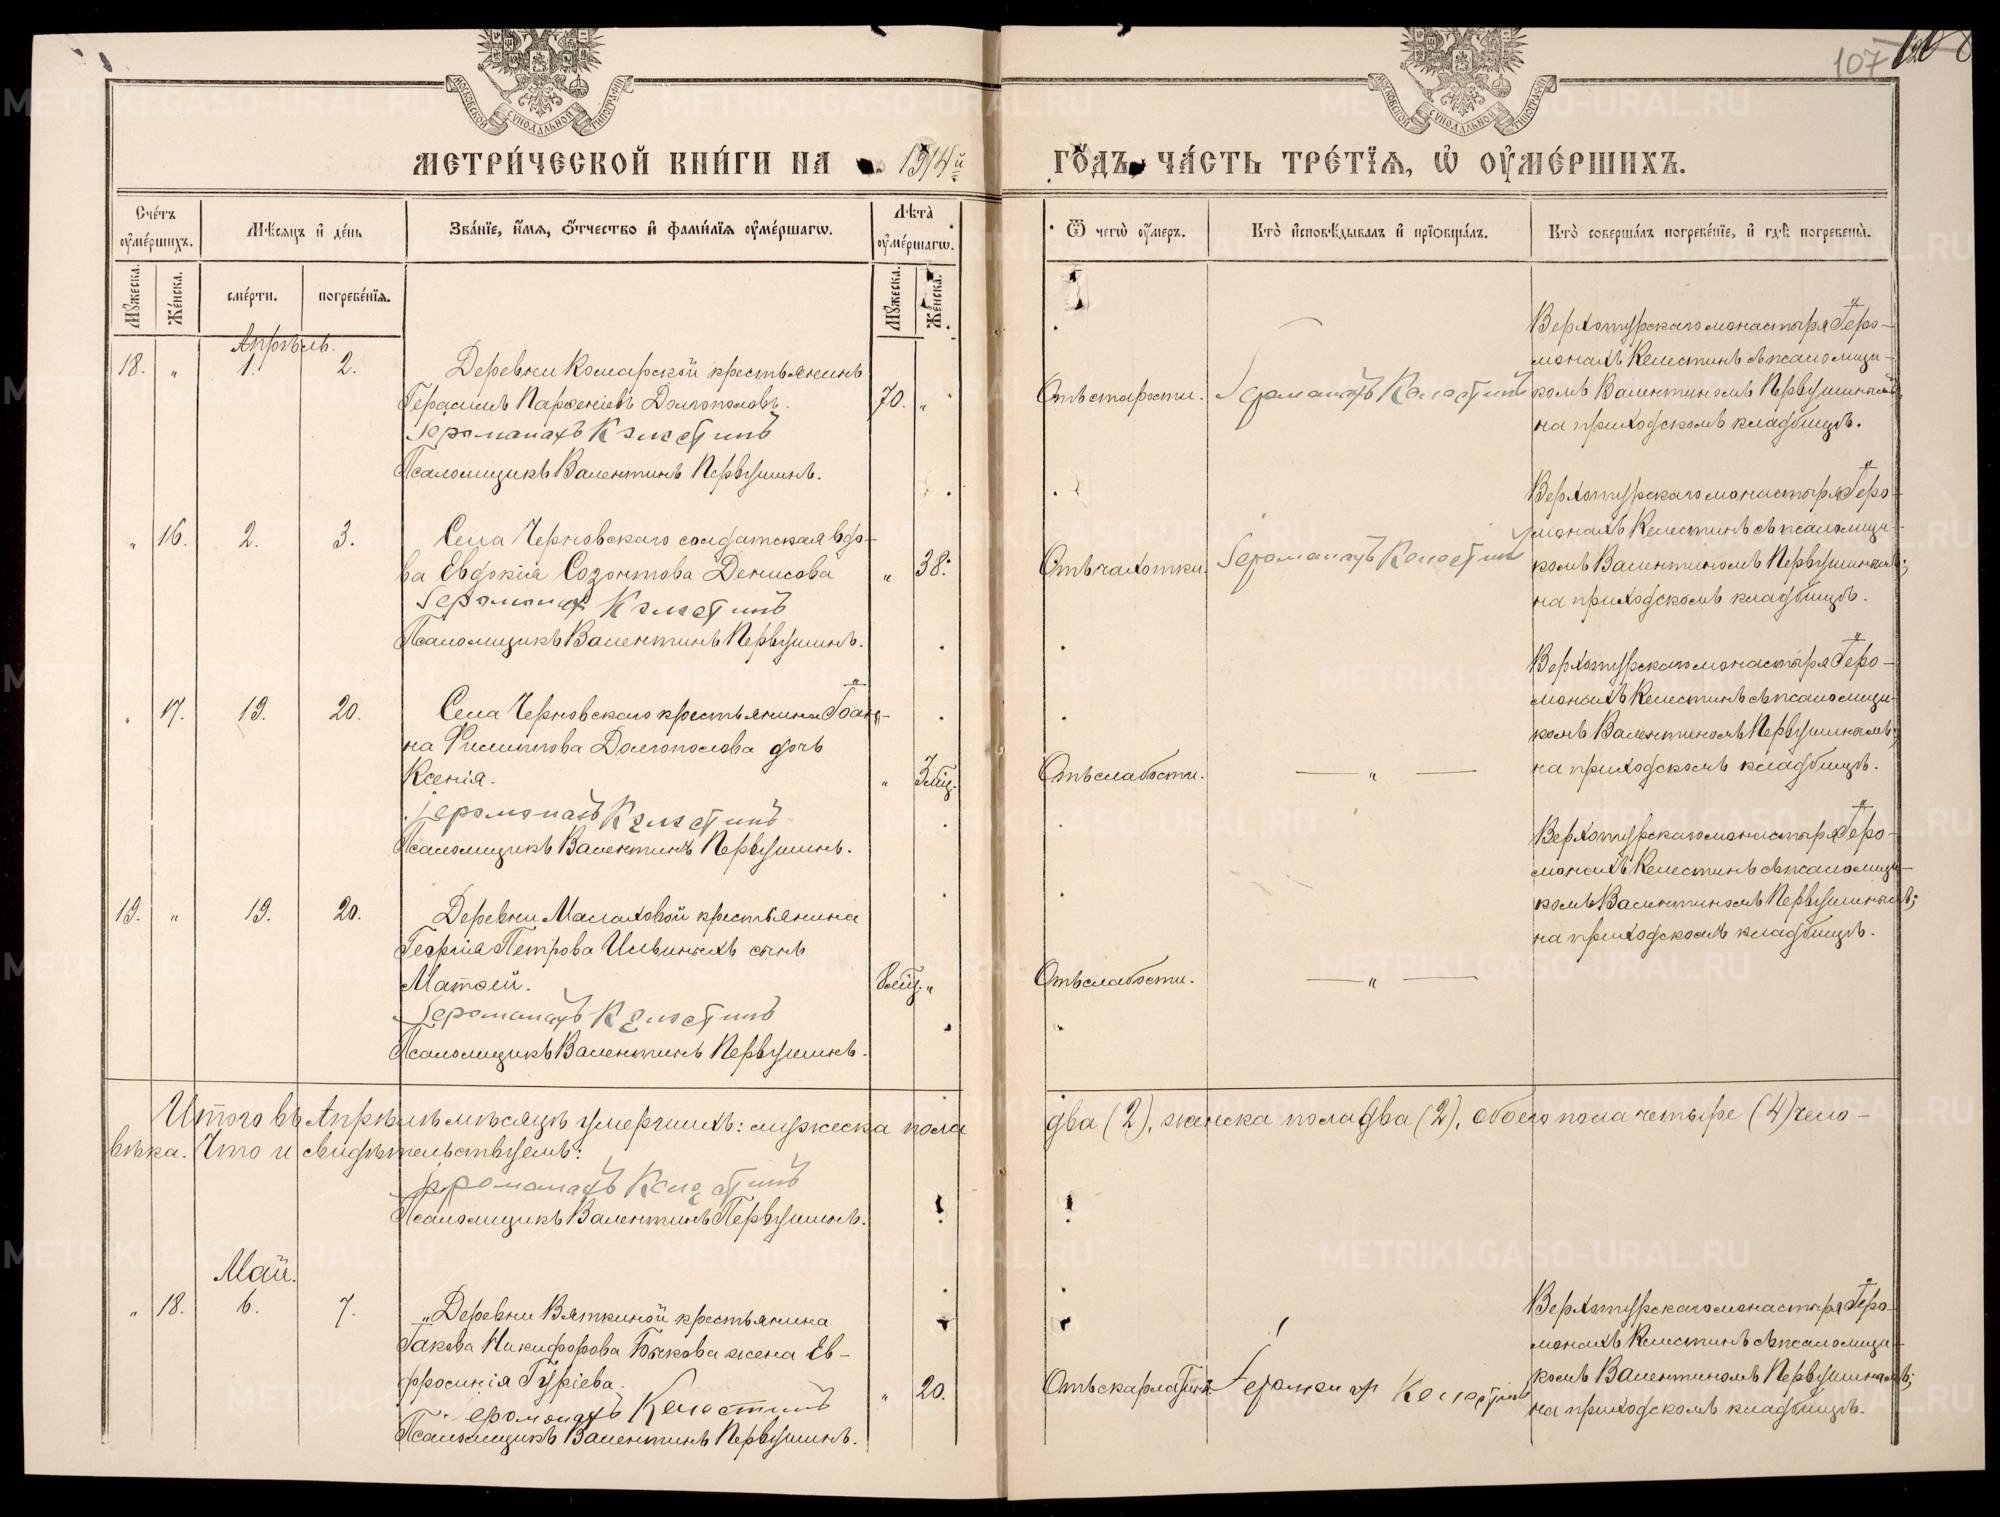 107
МОСКОВСКОЙ СѴНОДАЛЬНОЙ ТИПОГРАФІИ
МОСКОВСКОЙ СѴНОДАЛЬНОЙ ТИПОГРАФІИ
МЕТРИ́ЧЕСКОЙ КНИ́ГИ НА 1914й ГО́ДЪ, ЧА́СТЬ ТРЕ́ТІѦ, Ѡ ОУ҆МЕ́РШИХЪ.
Сче́тъ оу҆ме́ршихъ.
Мѣ́сяцъ и҆ де́нь
Зва́нїе, и҆́мѧ, ѻ҆́тчество и҆ фами́лїѧ оу҆ме́ршагѡ.
Лѣ́та оу҆ме́ршагѡ.
Ѿ чегѡ̀ оу҆́меръ.
Кто̀ и҆сповѣ́дывалъ и҆ прїѡбща́лъ.
Кто̀ соверша́лъ погребе́нїе, и҆ гдѣ̀ погребены̀.
Мꙋ́жеска. Же́нска.
сме́рти. погребе́нїѧ.
Мꙋ́жеска. Же́нска.
Апрѣль.
18. " 1. 2.
Деревни Комарской крестьянинъ
Герасимъ Парѳеніевъ Долгополовъ. 70. "
Іеромонахъ Келестинъ
Псаломщикъ Валентинъ Первушинъ.
Отъ старости.
Іеромонахъ Келестинъ
Верхотурскаго монастыря Іеро-
монахъ Келестинъ съ псаломщи-
комъ Валентиномъ Первушинымъ
на приходскомъ кладбищѣ.
" 16. 2. 3.
Села Черновскаго солдатская вдо-
ва Евдокія Созонтова Денисова " 38.
Іеромонах Келестинъ
Псаломщикъ Валентинъ Первушинъ.
Отъ чахотки.
Іеромонахъ Келестинъ
Верхотурскаго монастыря Іеро-
монахъ Келестинъ съ псаломщи-
комъ Валентиномъ Первушинымъ;
на приходскомъ кладбищѣ.
" 17. 19. 20.
Села Черновскаго крестьянина Іоан-
на Филиппова Долгополова дочь
Ксенія. " 3 мѣц.
Іеромонахъ Келестинъ
Псаломщикъ Валентинъ Первушинъ.
Отъ слабости.
— " —
Верхотурскаго монастыря Іеро-
монахъ Келестинъ съ псаломщи-
комъ Валентиномъ Первушинымъ;
на приходскомъ кладбищѣ.
19. " 19. 20.
Деревни Малаховой крестьянина
Георгія Петрова Ильиныхъ сынъ
Матѳей. "
Іеромонахъ Келестинъ
Псаломщикъ Валентинъ Первушинъ.
Отъ слабости.
— " —
Верхотурскаго монастыря Іеро-
монахъ Келестинъ съ псаломщи-
комъ Валентиномъ Первушинымъ;
на приходскомъ кладбищѣ.
Итого въ Апрѣлѣ мѣсяцѣ умершихъ: мужеска пола два (2), женска пола два (2), обоего пола четыре (4) чело-
вѣка. Что и свидѣтельствуемъ:
Іеромонахъ Келестинъ
Псаломщикъ Валентинъ Первушинъ.
Май.
" 18. 6. 7.
Деревни Вяткиной крестьянина
Іакова Никифорова Быкова жена Ев-
фросинія Гуріева. " 20.
Іеромонахъ Келестинъ
Псаломщикъ Валентинъ Первушинъ.
Отъ скарлатины.
Келестинъ
Верхотурскаго монастыря Іеро-
монахъ Келестинъ съ псаломщи-
комъ Валентиномъ Первушинымъ;
на приходскомъ кладбищѣ.
METRIKI.GASO-URAL.RU